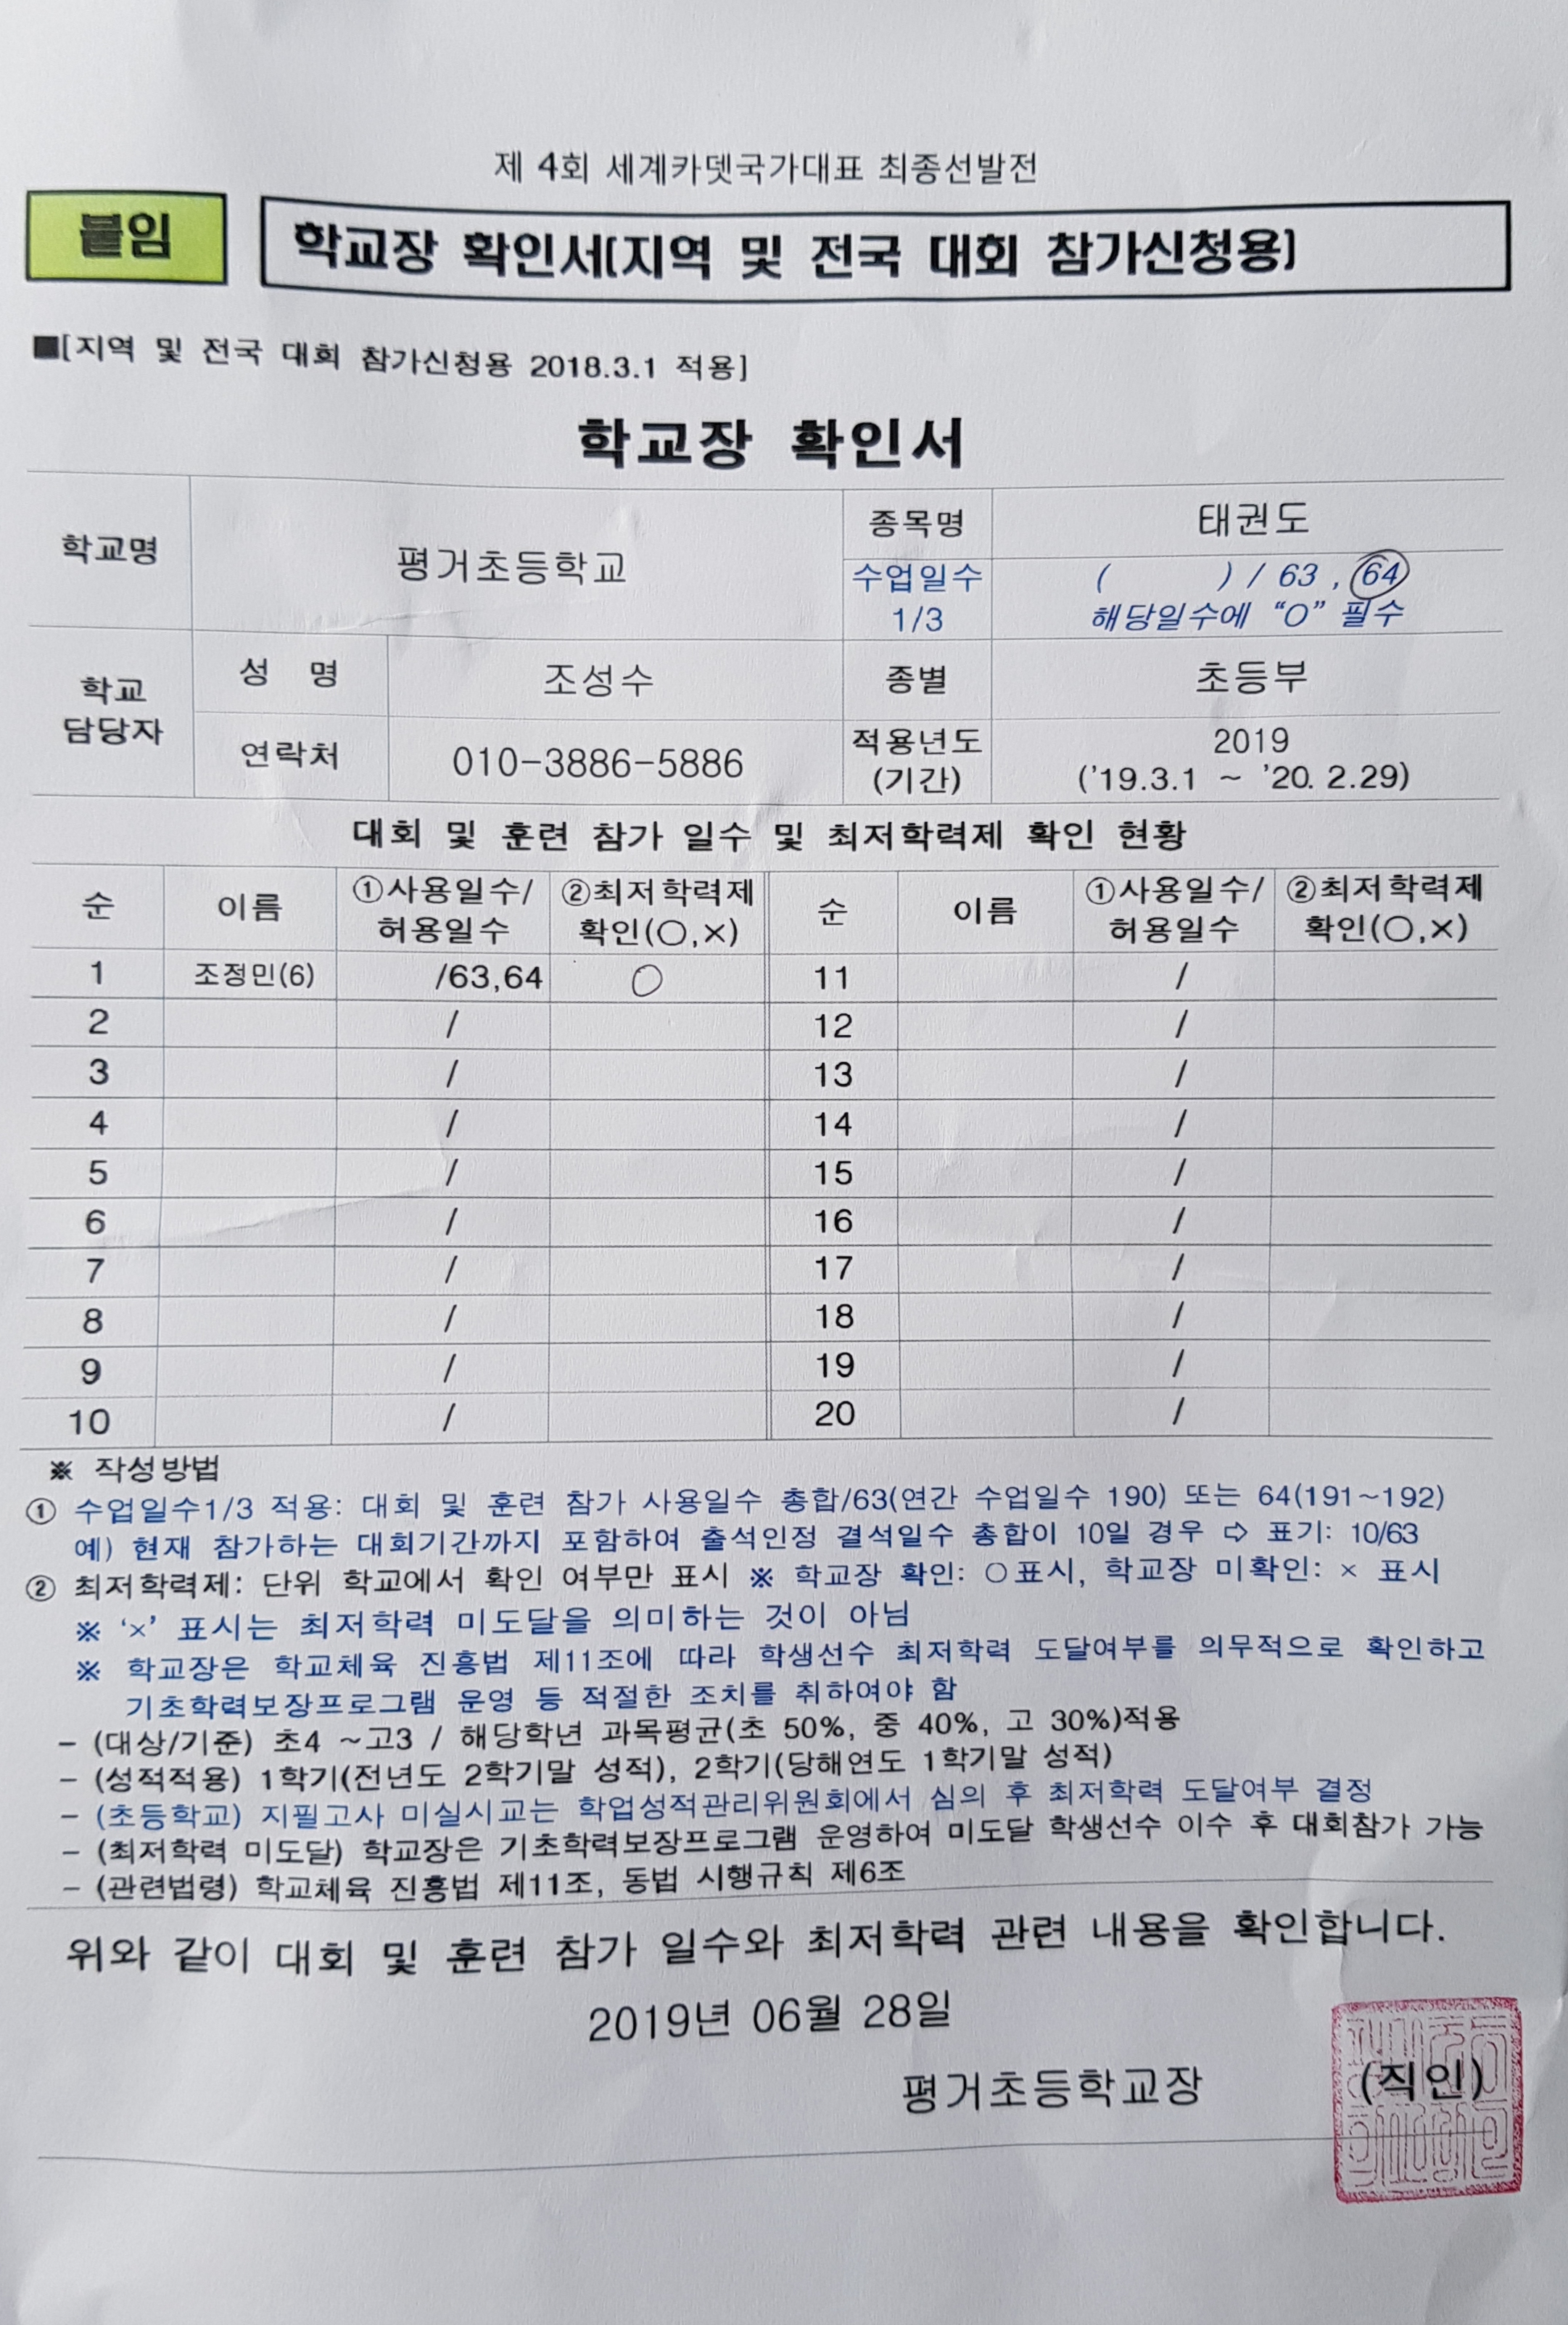 제 4회 세계카뎃국가대표 최종선발전
붙임
학교장 확인서(지역 및 전국 대회 참가신청용)
■[지역 및 전국 대회 참가신청용 2018.3.1 적용]
학교장 확인서
학교명 평거초등학교 종목명 태권도
수업일수 1/3 ( ) / 63 , 64
해당일수에 “O” 필수
학교 담당자 성 명 조성수 종별 초등부
연락처 010-3886-5886 적용년도 (기간) 2019 ('19.3.1 ~ '20. 2.29)
대회 및 훈련 참가 일수 및 최저학력제 확인 현황
순 이름 ①사용일수/허용일수 ②최저학력제 확인(○,×) 순 이름 ①사용일수/허용일수 ②최저학력제 확인(○,×)
1 조정민(6) /63,64 ○ 11 /
2 / 12 /
3 / 13 /
4 / 14 /
5 / 15 /
6 / 16 /
7 / 17 /
8 / 18 /
9 / 19 /
10 / 20 /
※ 작성방법
① 수업일수1/3 적용: 대회 및 훈련 참가 사용일수 총합/63(연간 수업일수 190) 또는 64(191~192)
예) 현재 참가하는 대회기간까지 포함하여 출석인정 결석일수 총합이 10일 경우 ⇨ 표기: 10/63
② 최저학력제: 단위 학교에서 확인 여부만 표시 ※ 학교장 확인: ○표시, 학교장 미확인: × 표시
※ ‘×’ 표시는 최저학력 미도달을 의미하는 것이 아님
※ 학교장은 학교체육 진흥법 제11조에 따라 학생선수 최저학력 도달여부를 의무적으로 확인하고
기초학력보장프로그램 운영 등 적절한 조치를 취하여야 함
- (대상/기준) 초4 ~고3 / 해당학년 과목평균(초 50%, 중 40%, 고 30%)적용
- (성적적용) 1학기(전년도 2학기말 성적), 2학기(당해연도 1학기말 성적)
- (초등학교) 지필고사 미실시교는 학업성적관리위원회에서 심의 후 최저학력 도달여부 결정
- (최저학력 미도달) 학교장은 기초학력보장프로그램 운영하여 미도달 학생선수 이수 후 대회참가 가능
- (관련법령) 학교체육 진흥법 제11조, 동법 시행규칙 제6조
위와 같이 대회 및 훈련 참가 일수와 최저학력 관련 내용을 확인합니다.
2019년 06월 28일
평거초등학교장 (직인)